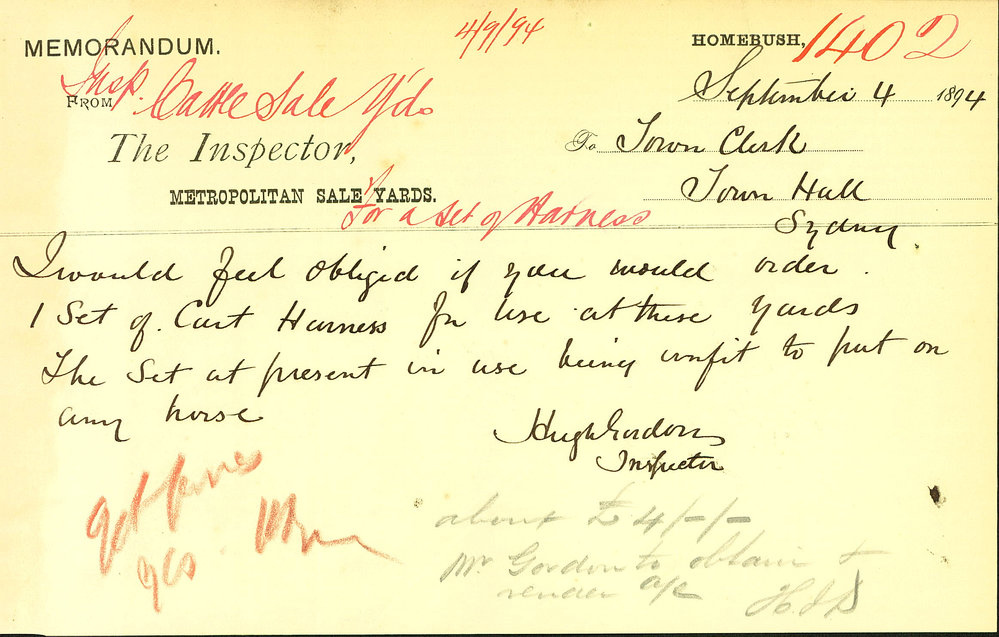 4/9/94
MEMORANDUM.
HOMEBUSH, 1402
Insp. Cattle Sale Yds
September 4 1894
FROM
The Inspector,
To Town Clerk
METROPOLITAN SALE YARDS.
Town Hall
For a set of Harness
Sydney.
I would feel obliged if you would order.
1 Set of Cart Harness for use at these yards
The Set at present in use being unfit to put on
any horse
Hugh Gordon
Inspector
Get
yes
about £4/-/-
Mr Gordon to obtain &
render a/c